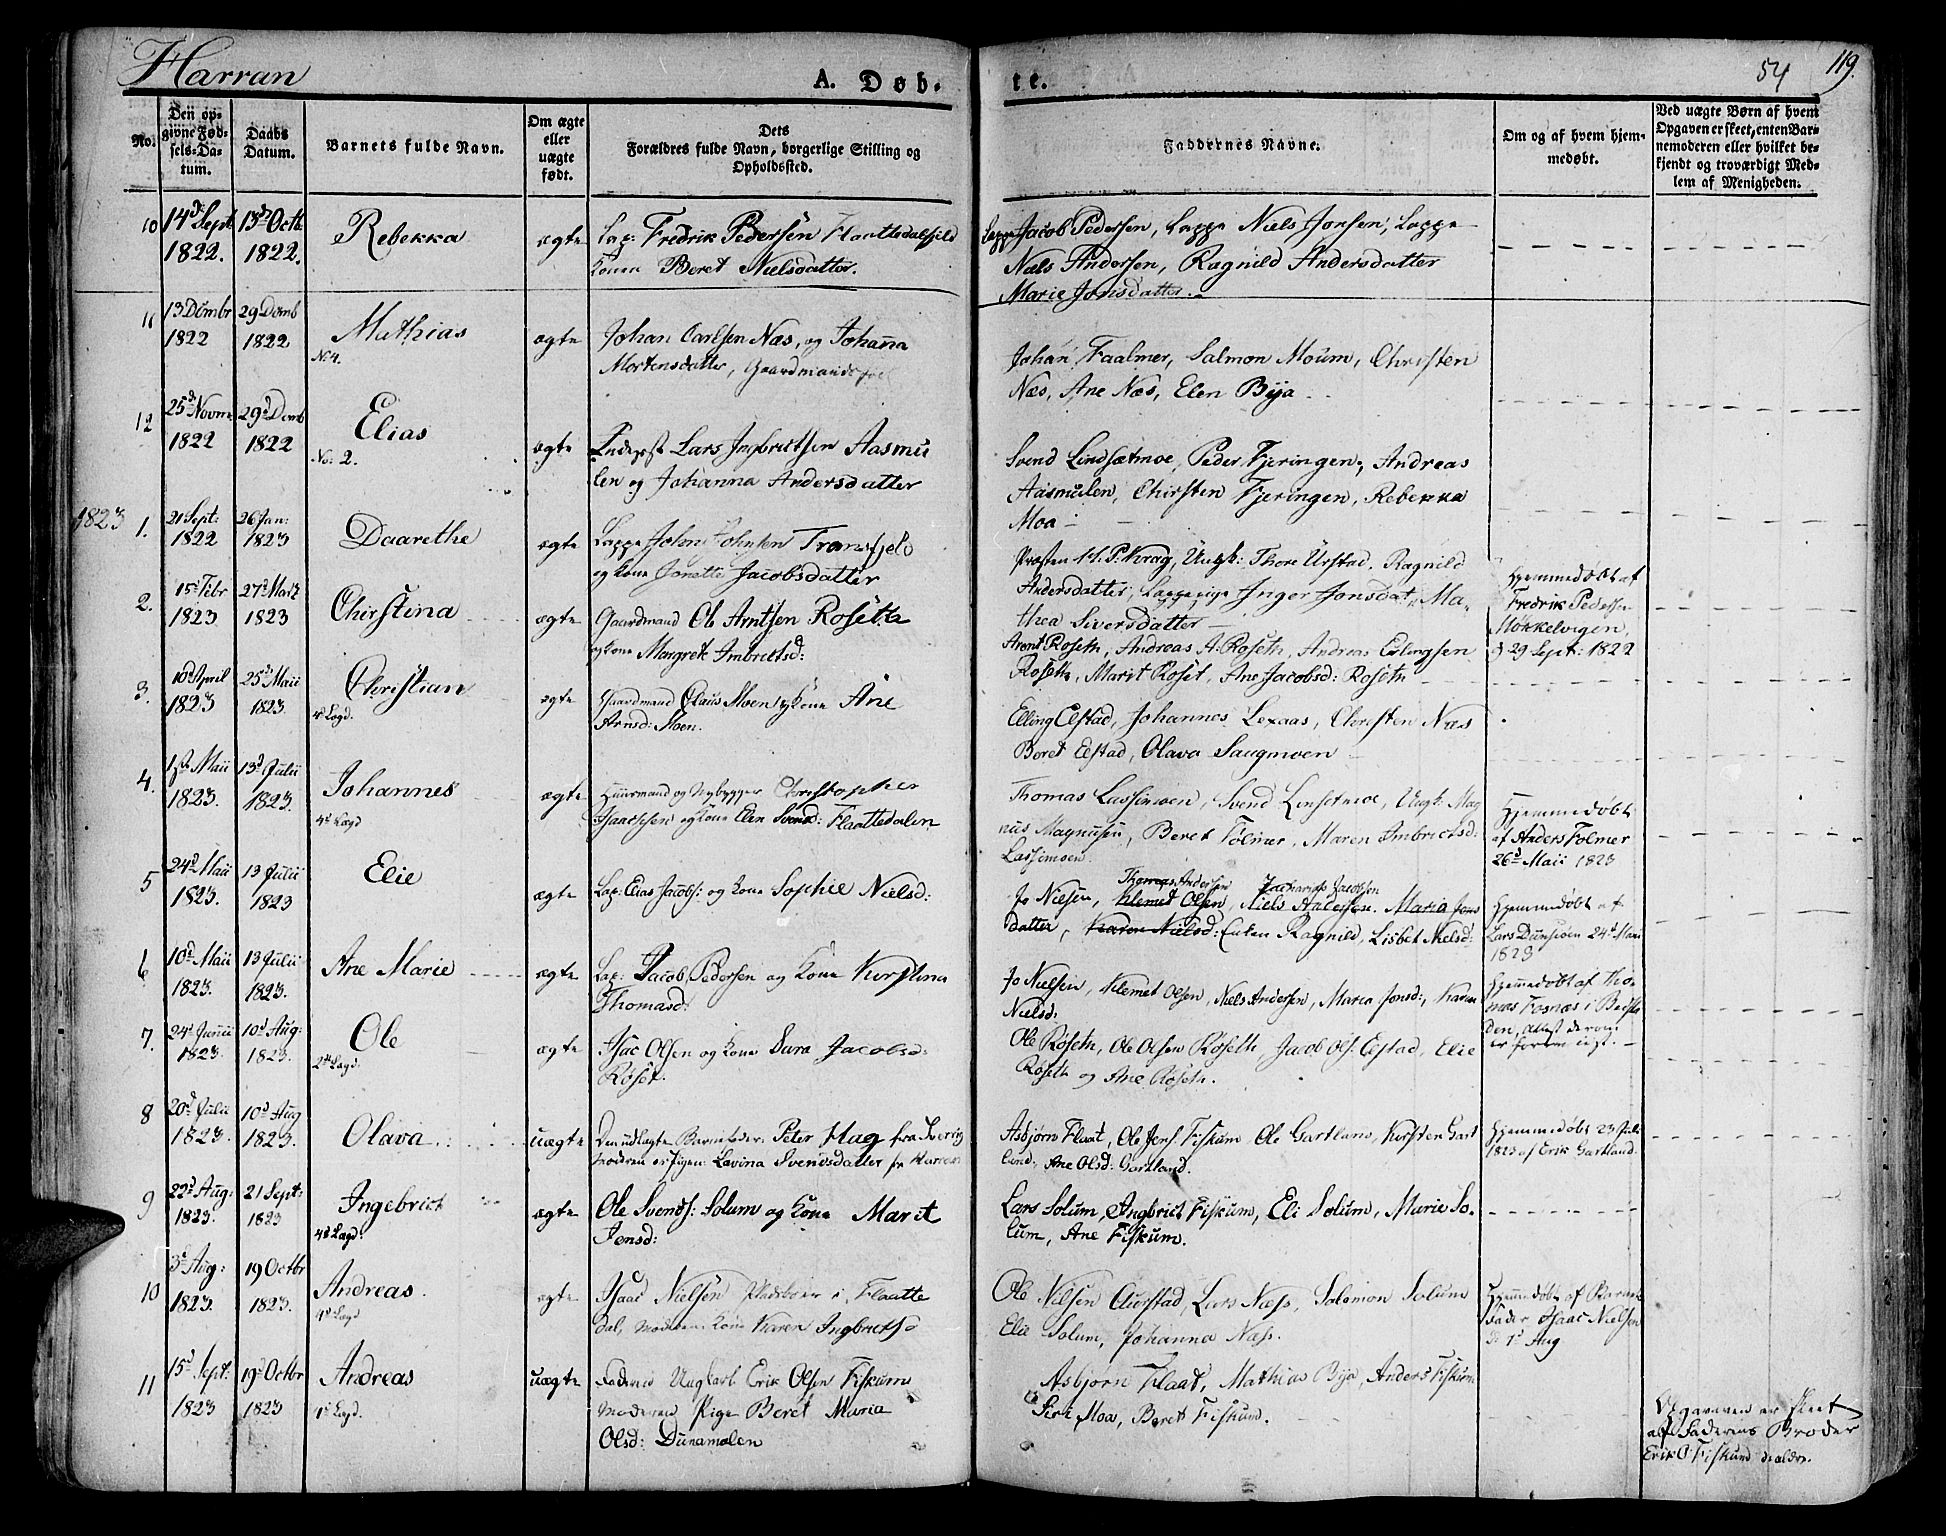 Harran
A. Døb-
te.
54
119.
No.
Den op-
givne Fød-
sels-Da-
tum.
Daabs
Datum.
Barnets fulde Navn.
Om ægte
eller
uægte
født.
Dets
Forældres fulde Navn, borgerlige Stilling og
Opholdssted.
Faddernes Navne.
Om og af hvem hjem-
medøbt.
Ved uægte Børn af hvem
Opgaven er skeet, enten Bar-
nemoderen eller hvilket be-
kjendt og troværdigt Med-
lem af Menigheden.
10 14d Sept 1822. 13d Octb 1822. Rebekka ægte
Lap: Fredrik Pedersen Flaattedalfjeld
Konen Beret Nielsdatter.
Lappe Jacob Pedersen, Lappe Niels Jonsen, Lappe
Niels Andersen, Ragnild Andersdatter
Marie Jonsdatter.
11 13 Dembr 1822 29 Demb 1822 Mathias No. 4. ægte
Johan Carlsen Næs, og Johanna
Mortensdatter, Gaardmandsfolk
Johan Faalmer, Salmon Moum, Christen
Næs, Ane Næs, Elen Bya
12 25d Novmr 1822 29d Demb 1822 Elias No: 2. ægte
Lars Ingbrictsen Aasmu
len og Johanna Andersdatter
Svend Lindsetmoe, Peder Fjeringen, Andreas
Aasmulen, Chirsten Fjeringen, Rebekka
Moa
1823
1. 21 Sept: 1822 26 Jan: 1823 Daarethe ægte
Lappe John Johnsen Transfjeld
og Kone Jonette Jacobsdatter
Præsten H. P. Krag, Ungk: Thore Urstad, Ragnild
Andersdatter, Lappepige Inger Jonsdat, Ma-
thea Siversdatter
Hjemmedøbt af
Fredrik Pedersen
Møkkelvigen,
d 29 Sept: 1822
2. 15 Febr 1823 27d Martz 1823 Chirstina ægte
Gaardmand Ole Arntsen Rosetth
og Kone Margret Imbrictsd:
Arent Roseth, Andreas A: Roseth, Andreas Erlingsen
Roseth, Marit Roset, Ane Jacobsd: Roseth
3. 10d April 1823 25d Maii 1823 Christian 4d Lægd. ægte
Gaardmand Claus Moen og Kone Ane
Arnsd: Moen.
Elling Elstad, Johannes Lexaas, Christen Næs
Beret Elstad, Olava Saugmoen
4. 1ste Maii 1823. 13d Julii 1823. Johannes 4d Lægd ægte
Huusmand og Nybygger Christopher
Isaachsen og Kone Elen Svensd: Flaattedalen
Thomas Lassemoen, Svend Linsetmoe, Ungk: Mag
nus Magnusen, Beret Følmer, Maren Imbrictsd:
Lassemoen.
Hjemmedøbt
af Anders Folmer
26d Maii 1823
5 24d Maii 1823. 13 Julii 1823 Elie ægte
Lap: Elias Jacobs: og Kone Sophie Nielsd:
Thomas Andersen Zacharias Jacobsen
Jo Nielsen, Klemet Olsen, Niels Andersen. Maria Jons
datter, Karen Nielsd: Enken Ragnild, Lisbet Nielsd:
Hjemmedøbt af
Lars Dunsiøen 24d Maii
1823
6 10d Maii 1823. 13 Julii 1823. Ane Marie ægte
Lap: Jacob Pedersen og Kone Kirstina
Thomasd:
Jo Nielsen, Klemet Olsen, Niels Andersen, Maria Jonsd:, Karen
Nielsd:
Hjemmedøbt af Tho-
mas Fosnæs i
den, attest derom
7. 24d Junii 1823. 10d Aug: 1823. Ole 2den Lægd. ægte
Isac Olsen og Kone Sara Jacobsd:
Røset.
Ole Røseth, Ole Olsen Røseth, Jacob Ols: Elstad, Elie
Roseth og Ane Roseth.
8 20d Julii 1823. 10d Aug 1823. Olava uægte
Den udlagte Barnefader: Peter Hag fra Sverig
Moderen er Pigen: Lavina Svendsdatter fr Harran
Asbjørn Flaat, Ole Jens: Fiskum Ole Gartland, Kirsten Gart
land, Ane Olsd: Gartland.
Hjemmedøbt 23 Juli
1823 af Erik Gartland.
9 22d Aug: 1823. 21 Sept: 1823 Ingebrict 4d Lægd. ægte
Ole Svends: Solum og Kone Marit
Jensd:
Lars Solum, Ingbrict Fiskum, Eli Solum, Marie So-
lum, Ane Fiskum.
10 3d Aug: 1823. 19 Octbr 1823. Andreas. 4d Lægd ægte
Isaac Nielsen Pladsboer i Flaatte
dal, Moderen: Kone Karen Ingbrictsd
Ole Nilsen Aurstad, Lars Næss, Solomon Solum
Elie Solum, Johanna Næss.
Hjemmedøbt af Barnets
Fader Isaac Nielsen
d: 1d Aug
11 15d Sept: 1823 19d Octbr 1823 Andreas 1d Lægd. uægte
Faderen Ungkarl Erik Olsen Fiskum
Moderen Pige Beret Maria
Olsd: Dunamolen
Asbjørn Flaat, Mathias Bya, Anders Fiskum
Siri Moa, Beret Fiskum.
Opgaven er skeet
af Faderens Broder
Erik O Fiskum d: ældre.